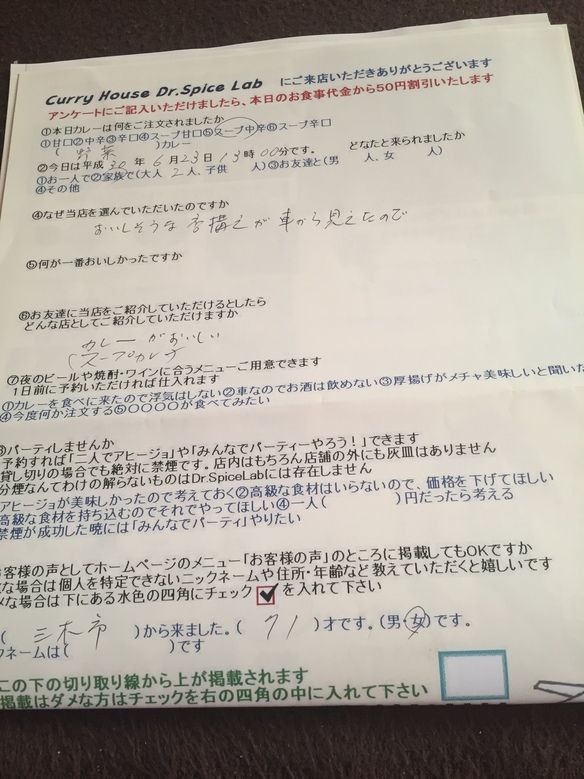 Curry House Dr.Spice Lab にご来店いただきありがとうございます
アンケートにご記入いただけましたら、本日のお食事代金から50円割引いたします
①本日カレーは何をご注文されましたか
①甘口②中辛③辛口④スープ甘口⑤スープ中辛⑥スープ辛口
( 野菜 )カレー
②今日は平成 30 年 6 月 23 日 13 時 00 分です。 どなたと来られましたか
①お一人で②家族で(大人 2 人、子供 人)③お友達と(男 人、女 人)
④その他
④なぜ当店を選んでいただいたのですか
おいしそうな 店構えが 車から見えたので
⑤何が一番おいしかったですか
⑥お友達に当店をご紹介していただけるとしたら
どんな店としてご紹介していただけますか
カレーがおいしい
(スープカレー
⑦夜のビールや焼酎・ワインに合うメニューご用意できます
1日前に予約いただければ仕入れます
①カレーを食べに来たので浮気はしない②車なのでお酒は飲めない③厚揚げがメチャ美味しいと聞いた
④今度何か注文する⑤〇〇〇〇が食べてみたい
パーティしませんか
予約すれば「二人でアヒージョ」や「みんなでパーティーやろう!」できます
貸し切りの場合でも絶対に禁煙です。店内はもちろん店舗の外にも灰皿はありません
分煙なんてわけの解らないものはDr.SpiceLabには存在しません
アヒージョが美味しかったので考えておく②高級な食材はいらないので、価格を下げてほしい
高級な食材を持ち込むのでそれでやってほしい④一人( )円だったら考える
禁煙が成功した暁には「みんなでパーティ」やりたい
お客様の声としてホームページのメニュー「お客様の声」のところに掲載してもOKですか
な場合は個人を特定できないニックネームや住所・年齢など教えていただくと嬉しいです
メな場合は下にある水色の四角にチェック✔を入れて下さい
( 三木市 )から来ました。( 71 )才です。(男・女)です。
クネームは( )です
この下の切り取り線から上が掲載されます
掲載はダメな方はチェックを右の四角の中に入れて下さい